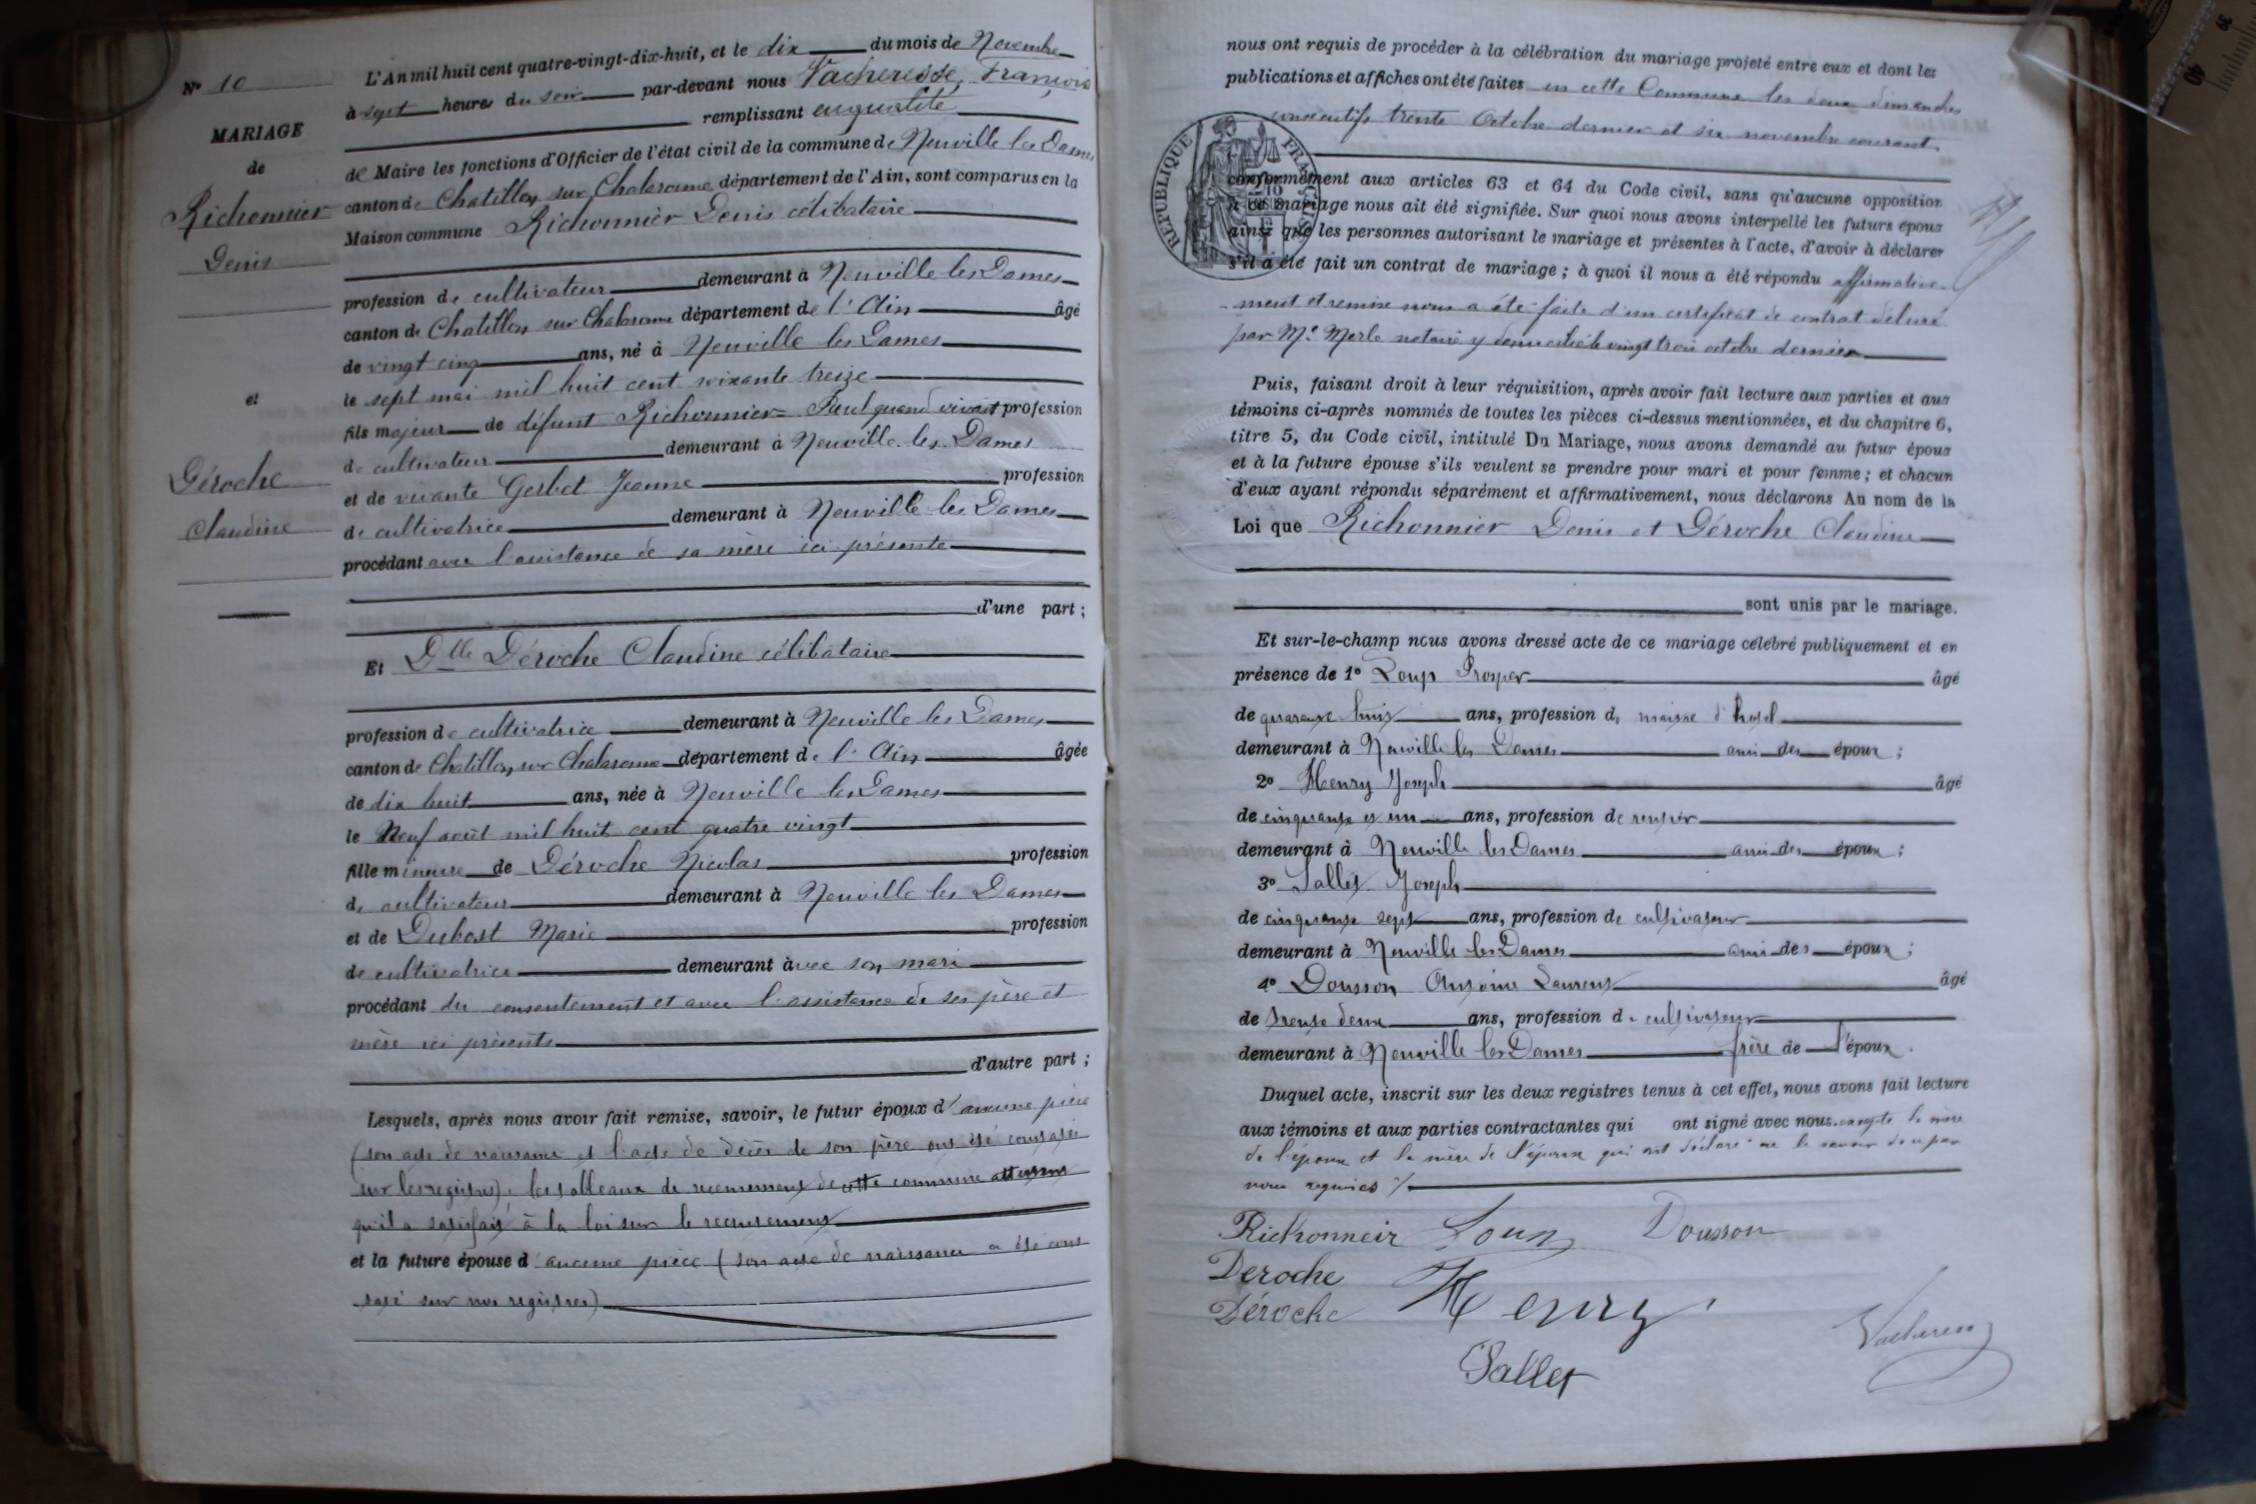 N° 10
MARIAGE
de
Richonnier
Denis
et
Déroche
Claudine
L'An mil huit cent quatre-vingt-dix-huit, et le dix du mois de Novembre
à sept heures du soir par-devant nous Vacheresse, François
remplissant en qualité
de Maire les fonctions d'Officier de l'état civil de la commune de Neuville les Dames
canton de Chatillon sur Chalaronne département de l'Ain, sont comparus en la
Maison commune Richonnier Denis célibataire
profession de cultivateur demeurant à Neuville les Dames
canton de Chatillon sur Chalaronne département de l'Ain âgé
de vingt cinq ans, né à Neuville les Dames
le sept mai mil huit cent soixante treize
fils majeur de défunt Richonnier Paul quand vivait profession
de cultivateur demeurant à Neuville les Dames
et de vivante Gerbet Jeanne profession
de cultivatrice demeurant à Neuville les Dames
procédant avec l'assistance de sa mère ici présente
d'une part ;
Et Dlle Déroche Claudine célibataire
profession de cultivatrice demeurant à Neuville les Dames
canton de Chatillon sur Chalaronne département de l'Ain âgée
de dix huit ans, née à Neuville les Dames
le Neuf août mil huit cent quatre vingt
fille mineure de Déroche Nicolas profession
de cultivateur demeurant à Neuville les Dames
et de Dubost Marie profession
de cultivatrice demeurant avec son mari
procédant du consentement et avec l'assistance de ses père et
mère ici présents
d'autre part ;
Lesquels, après nous avoir fait remise, savoir, le futur époux d'aucune pièce
(son acte de naissance et l'acte de décès de son père ont été constatés
sur les registres). les tableaux de recensement de cette commune attestent
qu'il a satisfait à la loi sur le recrutement
et la future épouse d'aucune pièce (son acte de naissance a été cons
taté sur nos registres)
nous ont requis de procéder à la célébration du mariage projeté entre eux et dont les
publications et affiches ont été faites en cette Commune les deux dimanches
consécutifs trente Octobre dernier et six novembre courant
RÉPUBLIQUE FRANÇAISE
conformément aux articles 63 et 64 du Code civil, sans qu'aucune opposition
à ce mariage nous ait été signifiée. Sur quoi nous avons interpellé les futurs époux
ainsi que les personnes autorisant le mariage et présentes à l'acte, d'avoir à déclarer
s'il a été fait un contrat de mariage ; à quoi il nous a été répondu affirmative-
-ment et remise nous a été faite d'un certificat de contrat délivré
par Me Merle notaire y domicilié le vingt trois octobre dernier
Puis, faisant droit à leur réquisition, après avoir fait lecture aux parties et aux
témoins ci-après nommés de toutes les pièces ci-dessus mentionnées, et du chapitre 6,
titre 5, du Code civil, intitulé Du Mariage, nous avons demandé au futur époux
et à la future épouse s'ils veulent se prendre pour mari et pour femme ; et chacun
d'eux ayant répondu séparément et affirmativement, nous déclarons Au nom de la
Loi que Richonnier Denis et Déroche Claudine
sont unis par le mariage.
Et sur-le-champ nous avons dressé acte de ce mariage célébré publiquement et en
présence de 1° Loup Prosper âgé
de quarante huit ans, profession de maître d'hôtel
demeurant à Neuville les Dames ami des époux ;
2° Henry Joseph âgé
de cinquante et un ans, profession de rentier
demeurant à Neuville les Dames ami des époux ;
3° Sallet Joseph
de cinquante sept ans, profession de cultivateur
demeurant à Neuville les Dames ami des époux ;
4° Dousson Antoine Laurent âgé
de trente deux ans, profession de cultivateur
demeurant à Neuville les Dames frère de l'époux.
Duquel acte, inscrit sur les deux registres tenus à cet effet, nous avons fait lecture
aux témoins et aux parties contractantes qui ont signé avec nous. excepté la mère
de l'époux et la mère de l'épouse qui ont déclaré ne le savoir de ce par
nous requises ./.
Richonneir Loup Dousson
Deroche Henry
Déroche
Vacheresse
Sallet